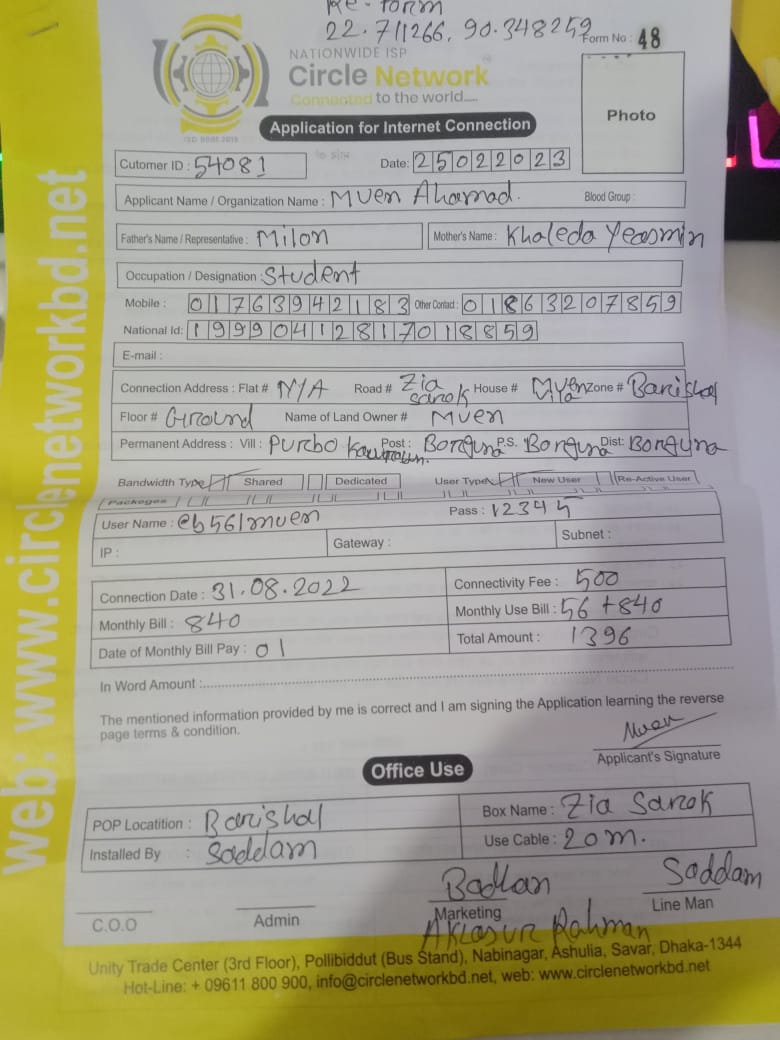 Re-form
22.711266, 90.348259
Form No : 48
NATIONWIDE ISP
Circle Network
Connected to the world.....
ISO 9001 2015
Photo
Application for Internet Connection
Cutomer ID : 54081 Date: 25022023
Applicant Name / Organization Name : Muen Ahamad. Blood Group :
Father's Name / Representative : Milon Mother's Name : Khaleda Yeasmin
Occupation / Designation : Student
Mobile : 01763942183 Other Contact : 01863207859
National Id: 19990412817018859
E-mail :
Connection Address : Flat # N/A Road # Zia Sarok House # Muen Zone # Barishal
Floor # Ground Name of Land Owner # Muen
Permanent Address : Vill : Purbo Post : Borguna P.S. Borguna Dist: Borguna
Bandwidth Type Shared Dedicated User Type New User Re-Active User
Packages
User Name : cb561muen Pass : 12345
IP : Gateway : Subnet :
Connection Date : 31.08.2022 Connectivity Fee : 500
Monthly Bill : 840 Monthly Use Bill : 56 + 840
Date of Monthly Bill Pay : 01 Total Amount : 1396
In Word Amount :
The mentioned information provided by me is correct and I am signing the Application learning the reverse
page terms & condition.
Muen
Applicant's Signature
Office Use
POP Locatition : Barishal Box Name : Zia Sarok
Installed By : Saddam Use Cable : 20 m.
C.O.O Admin Badhan Marketing Saddam Line Man
Rahman
Unity Trade Center (3rd Floor), Pollibiddut (Bus Stand), Nabinagar, Ashulia, Savar, Dhaka-1344
Hot-Line: + 09611 800 900, info@circlenetworkbd.net, web: www.circlenetworkbd.net
web: www.circlenetworkbd.net